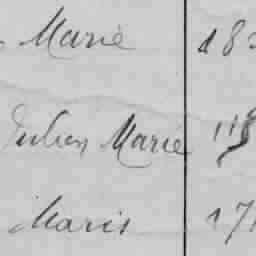 Marie 18
Julien Marie 118
Maris 17